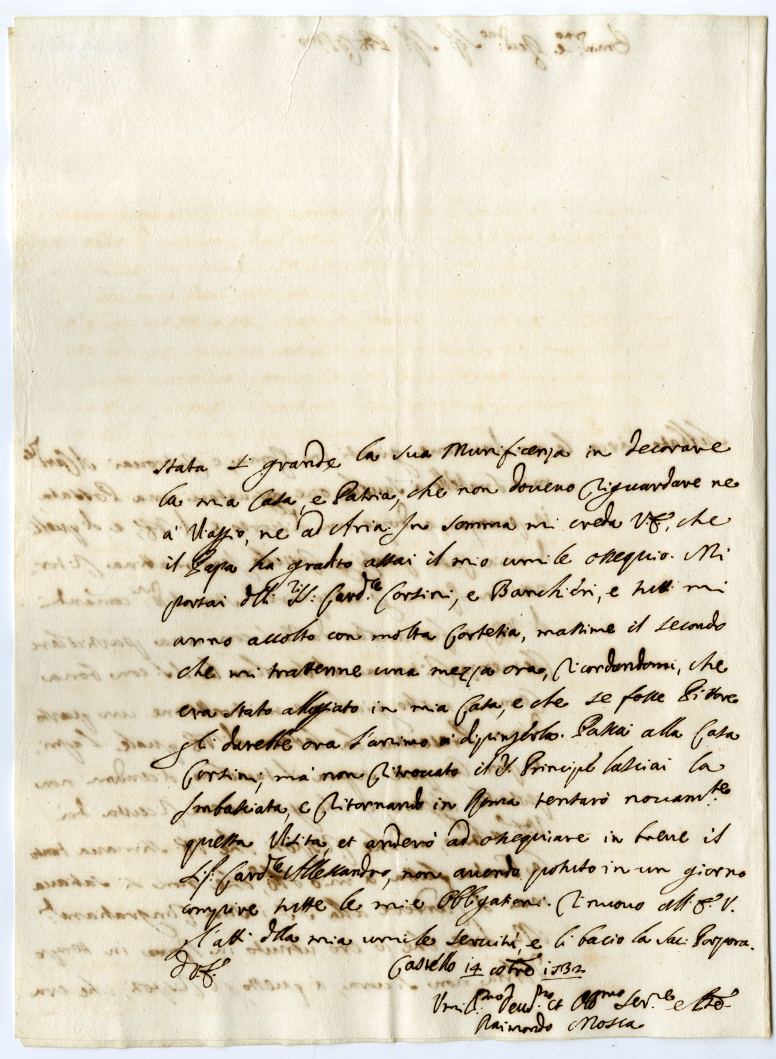 stata sì grande la sua Munificenza in decorare
la mia Casa, e Patria, che non doveno riguardare ne
a' Viaggio, ne ad Aria. In somma mi creda V. E., che
il Papa ha gradito assai il mio umile ossequio. Mi
portai dalli SS.ri Card.li Corsini, e Banchieri, e tutti mi
anno accolto con molta Cortesia, massime il secondo
che mi trattenne una mezza ora, ricordandomi, che
era stato allogiato in mia Casa, e che se fosse Pittore
gli darebbe ora l'animo a' dipingerla. Passai alla Casa
Corsini, ma non ritrovato il S. Principe lasciai la
Imbasciata, e ritornando in Roma tentarò novam.te
questa Visita, et anderò ad ossequiare in breve il
S.r Card.le Alessandro, non avendo potuto in un giorno
compire tutte le mie obbligationi. Rinuovo all' E. V.
gl'atti della mia umile servitù, e li bacio la Sac: Porpora.
D. V. E.
Castello 14 ottobre 1732
Umil.mo Devot.mo et Obb.mo Ser.re
Raimondo Mosca